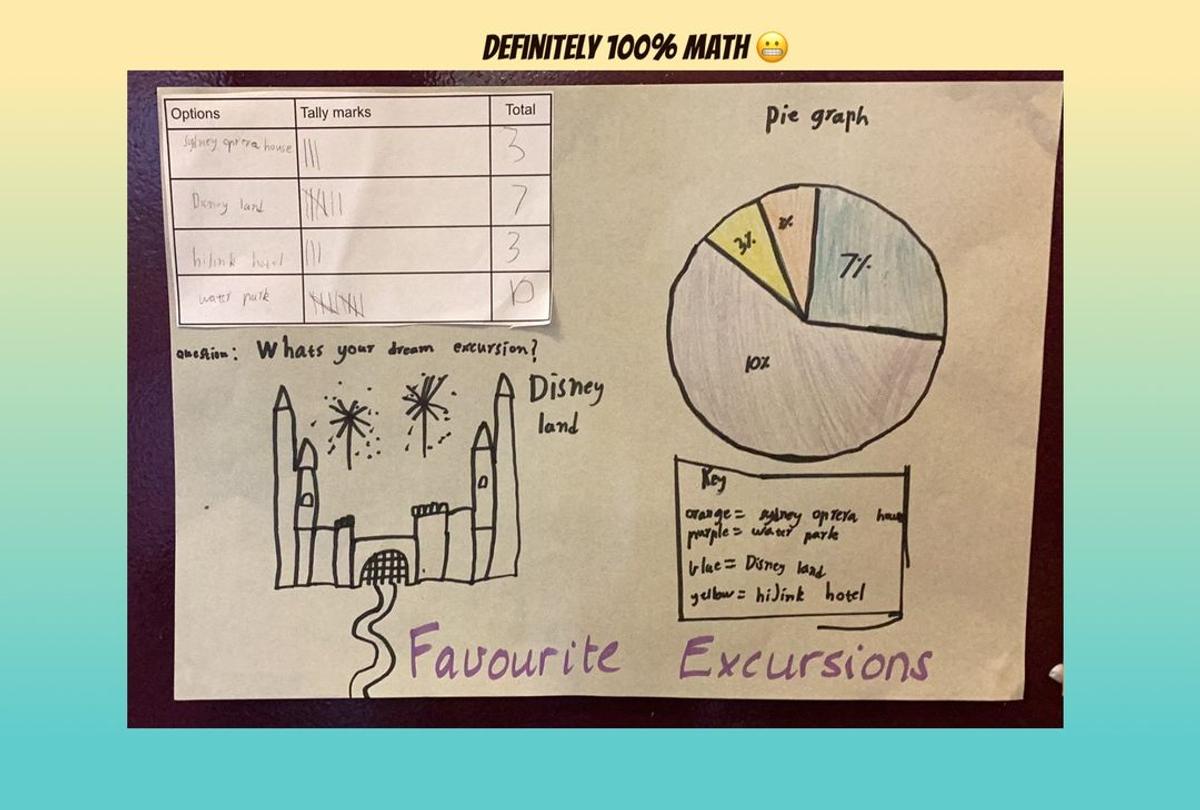 DEFINITELY 100% MATH 😬
Options Tally marks Total
Sydney oprera house 3
Disney land 7
hijink hotel 3
water park 10
Question: Whats your dream excursion?
Disney
land
Pie graph
3%
7%
10%
Key
orange = sydney oprera
purple = water park
blue = Disney land
yellow = hijink hotel
Favourite Excursions